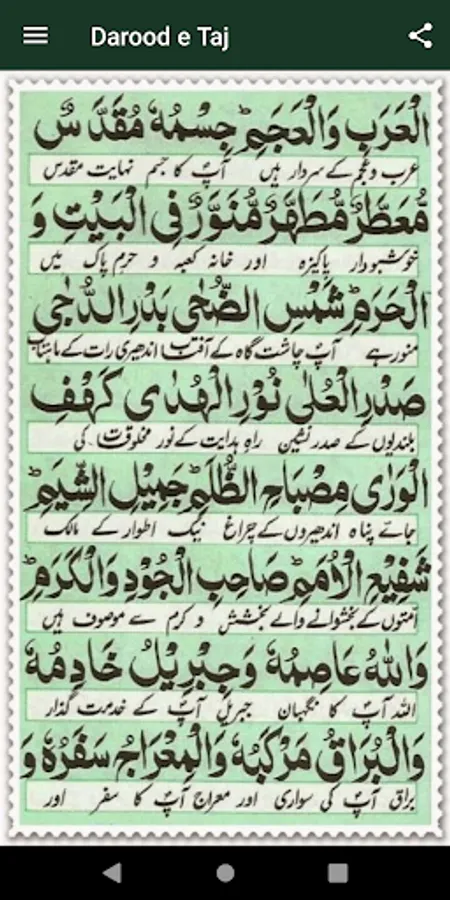 Darood e Taj
الْعَرَبِ وَالْعَجَمِ ؕ جِسْمُهٗ مُقَدَّسٌ
عرب وعجم کے سردار ہیں آپؐ کا جسم نہایت مقدس
مُّعَطَّرٌ مُّطَهَّرٌ مُّنَوَّرٌ فِی الْبَیْتِ وَ
خوشبودار پاکیزہ اور خانہ کعبہ و حرم پاک میں
الْحَرَمِ ؕ شَمْسِ الضُّحٰی بَدْرِ الدُّجٰی
منور ہے آپؐ چاشت گاہ کے آفتاب اندھیری رات کے ماہتاب
صَدْرِ الْعُلٰی نُوْرِ الْهُدٰی كَهْفِ
بلندیوں کے صدر نشین راہِ ہدایت کے نور مخلوقات کی
الْوَرٰی مِصْبَاحِ الظُّلَمِ ؕ جَمِیْلِ الشِّیَمِ ؕ
جائے پناہ اندھیروں کے چراغ نیک اطوار کے مالک
شَفِیْعِ الْاُمَمِ ؕ صَاحِبِ الْجُوْدِ وَالْكَرَمِ ؕ
امتوں کے بخشوانے والے بخشش و کرم سے موصوف ہیں
وَاللهُ عَاصِمُهٗ وَجِبْرِیْلُ خَادِمُهٗ
اللہ آپؐ کا نگہبان جبریل آپؐ کے خدمت گذار
وَالْبُرَاقُ مَرْكَبُهٗ وَالْمِعْرَاجُ سَفَرُهٗ وَ
براق آپؐ کی سواری اور معراج آپؐ کا سفر اور